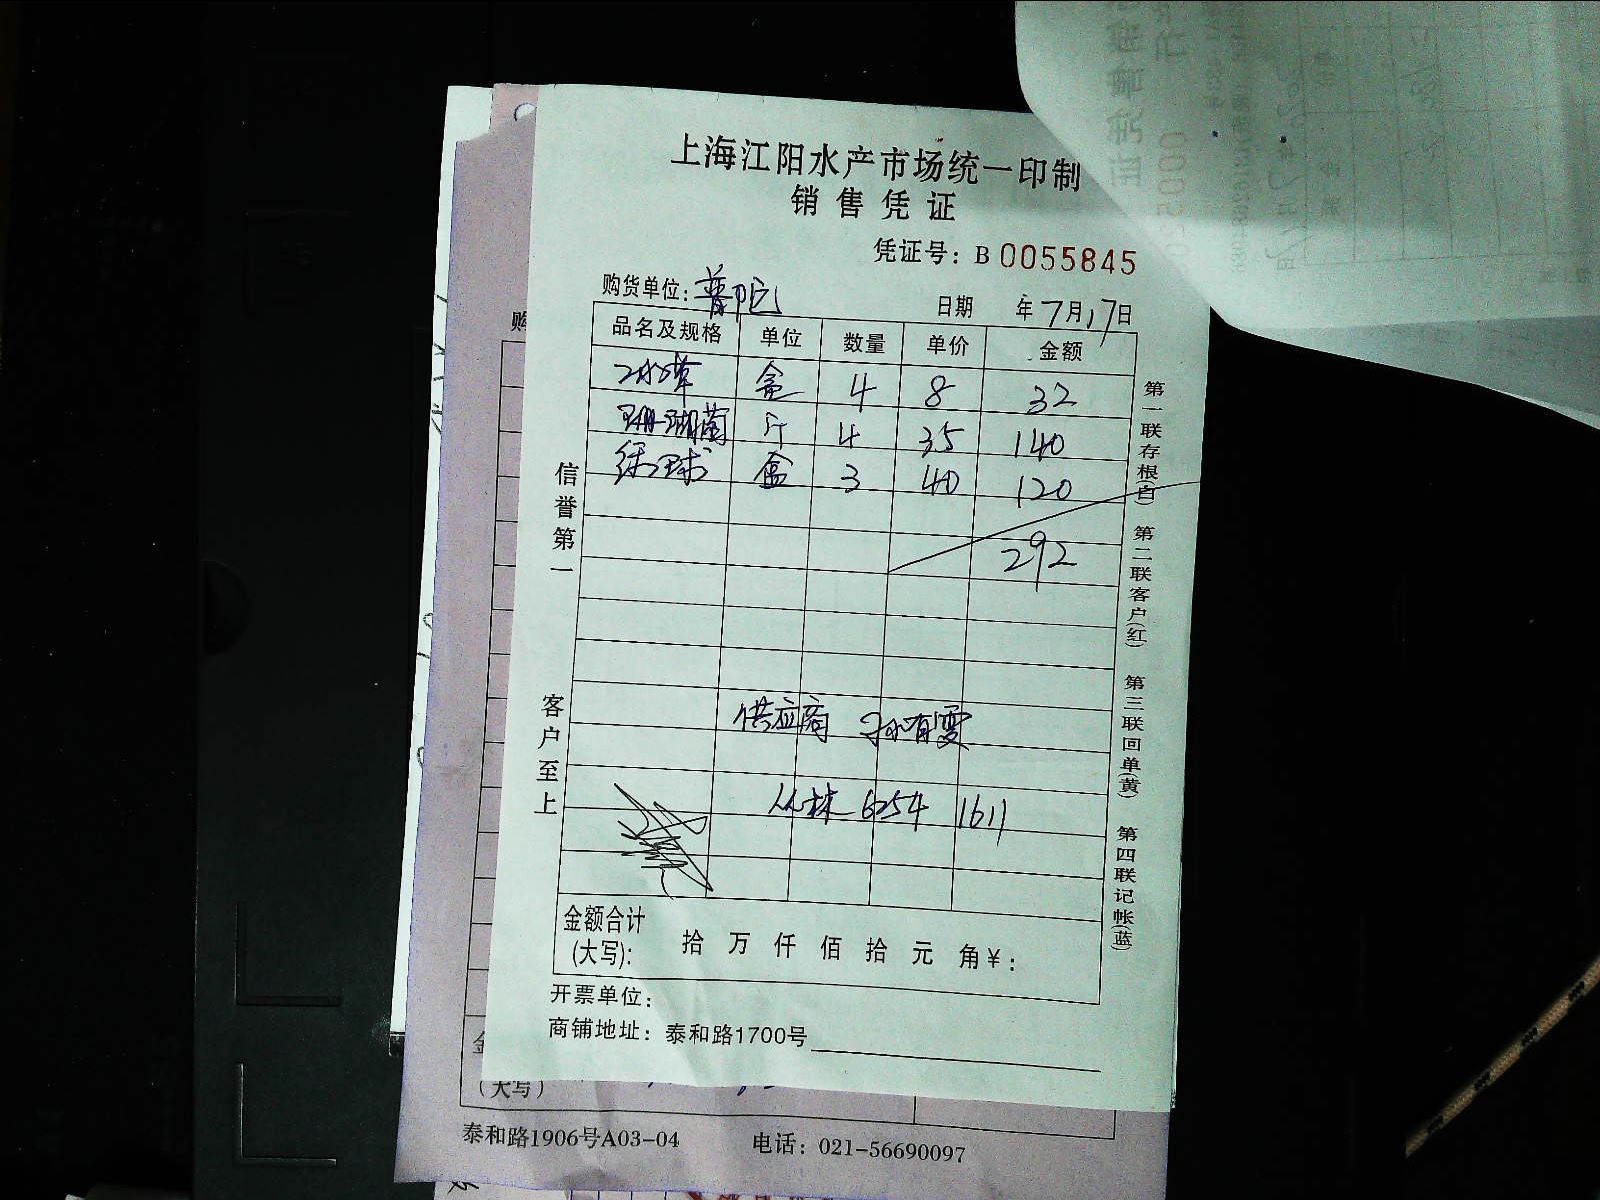 上海江阳水产市场统一印制
销售凭证
凭证号：B 0055845
购货单位：普陀 日期 年7月17日
品名及规格 单位 数量 单价 金额
冰草 盒 4 8 32
珊瑚菌 斤 4 35 140
绿球 盒 3 40 120
292
供应商 孙有雯
丛林 6254 1611
金额合计
(大写)： 拾 万 仟 佰 拾 元 角￥：
开票单位：
商铺地址：泰和路1700号
信誉第一
客户至上
第一联存根(白) 第二联客户(红) 第三联回单(黄) 第四联记帐(蓝)
购
金
（大写）
泰和路1906号A03-04 电话：021-56690097